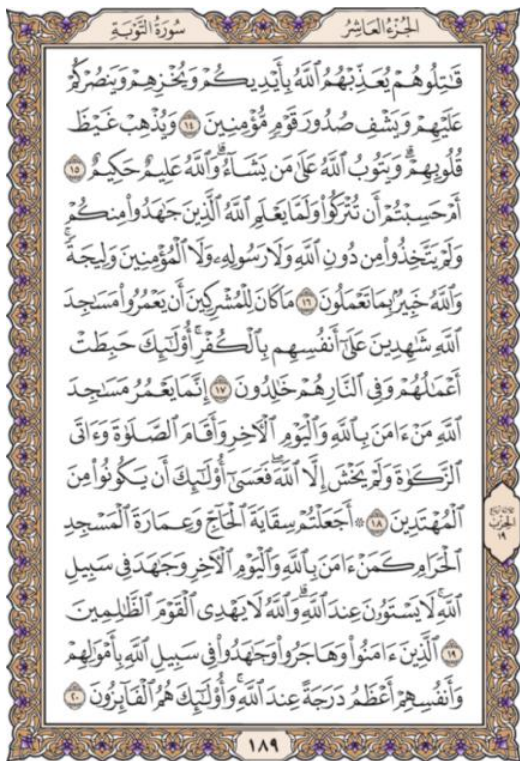 الجُزْءُ العَاشِرُ
سُورَةُ التَّوْبَةِ
قَٰتِلُوهُمْ يُعَذِّبْهُمُ ٱللَّهُ بِأَيْدِيكُمْ وَيُخْزِهِمْ وَيَنصُرْكُمْ
عَلَيْهِمْ وَيَشْفِ صُدُورَ قَوْمٍ مُّؤْمِنِينَ ١٤ وَيُذْهِبْ غَيْظَ
قُلُوبِهِمْۗ وَيَتُوبُ ٱللَّهُ عَلَىٰ مَن يَشَآءُۗ وَٱللَّهُ عَلِيمٌ حَكِيمٌ ١٥
أَمْ حَسِبْتُمْ أَن تُتْرَكُوا۟ وَلَمَّا يَعْلَمِ ٱللَّهُ ٱلَّذِينَ جَٰهَدُوا۟ مِنكُمْ
وَلَمْ يَتَّخِذُوا۟ مِن دُونِ ٱللَّهِ وَلَا رَسُولِهِۦ وَلَا ٱلْمُؤْمِنِينَ وَلِيجَةًۚ
وَٱللَّهُ خَبِيرٌۢ بِمَا تَعْمَلُونَ ١٦ مَا كَانَ لِلْمُشْرِكِينَ أَن يَعْمُرُوا۟ مَسَٰجِدَ
ٱللَّهِ شَٰهِدِينَ عَلَىٰٓ أَنفُسِهِم بِٱلْكُفْرِۚ أُو۟لَٰٓئِكَ حَبِطَتْ
أَعْمَٰلُهُمْ وَفِى ٱلنَّارِ هُمْ خَٰلِدُونَ ١٧ إِنَّمَا يَعْمُرُ مَسَٰجِدَ
ٱللَّهِ مَنْ ءَامَنَ بِٱللَّهِ وَٱلْيَوْمِ ٱلْءَاخِرِ وَأَقَامَ ٱلصَّلَوٰةَ وَءَاتَى
ٱلزَّكَوٰةَ وَلَمْ يَخْشَ إِلَّا ٱللَّهَۖ فَعَسَىٰٓ أُو۟لَٰٓئِكَ أَن يَكُونُوا۟ مِنَ
ٱلْمُهْتَدِينَ ١٨ ۞ أَجَعَلْتُمْ سِقَايَةَ ٱلْحَآجِّ وَعِمَارَةَ ٱلْمَسْجِدِ
ٱلْحَرَامِ كَمَنْ ءَامَنَ بِٱللَّهِ وَٱلْيَوْمِ ٱلْءَاخِرِ وَجَٰهَدَ فِى سَبِيلِ
ٱللَّهِۚ لَا يَسْتَوُۥنَ عِندَ ٱللَّهِۗ وَٱللَّهُ لَا يَهْدِى ٱلْقَوْمَ ٱلظَّٰلِمِينَ
١٩ ٱلَّذِينَ ءَامَنُوا۟ وَهَاجَرُوا۟ وَجَٰهَدُوا۟ فِى سَبِيلِ ٱللَّهِ بِأَمْوَٰلِهِمْ
وَأَنفُسِهِمْ أَعْظَمُ دَرَجَةً عِندَ ٱللَّهِۚ وَأُو۟لَٰٓئِكَ هُمُ ٱلْفَآئِزُونَ ٢٠
الحزب
١٩
١٨٩